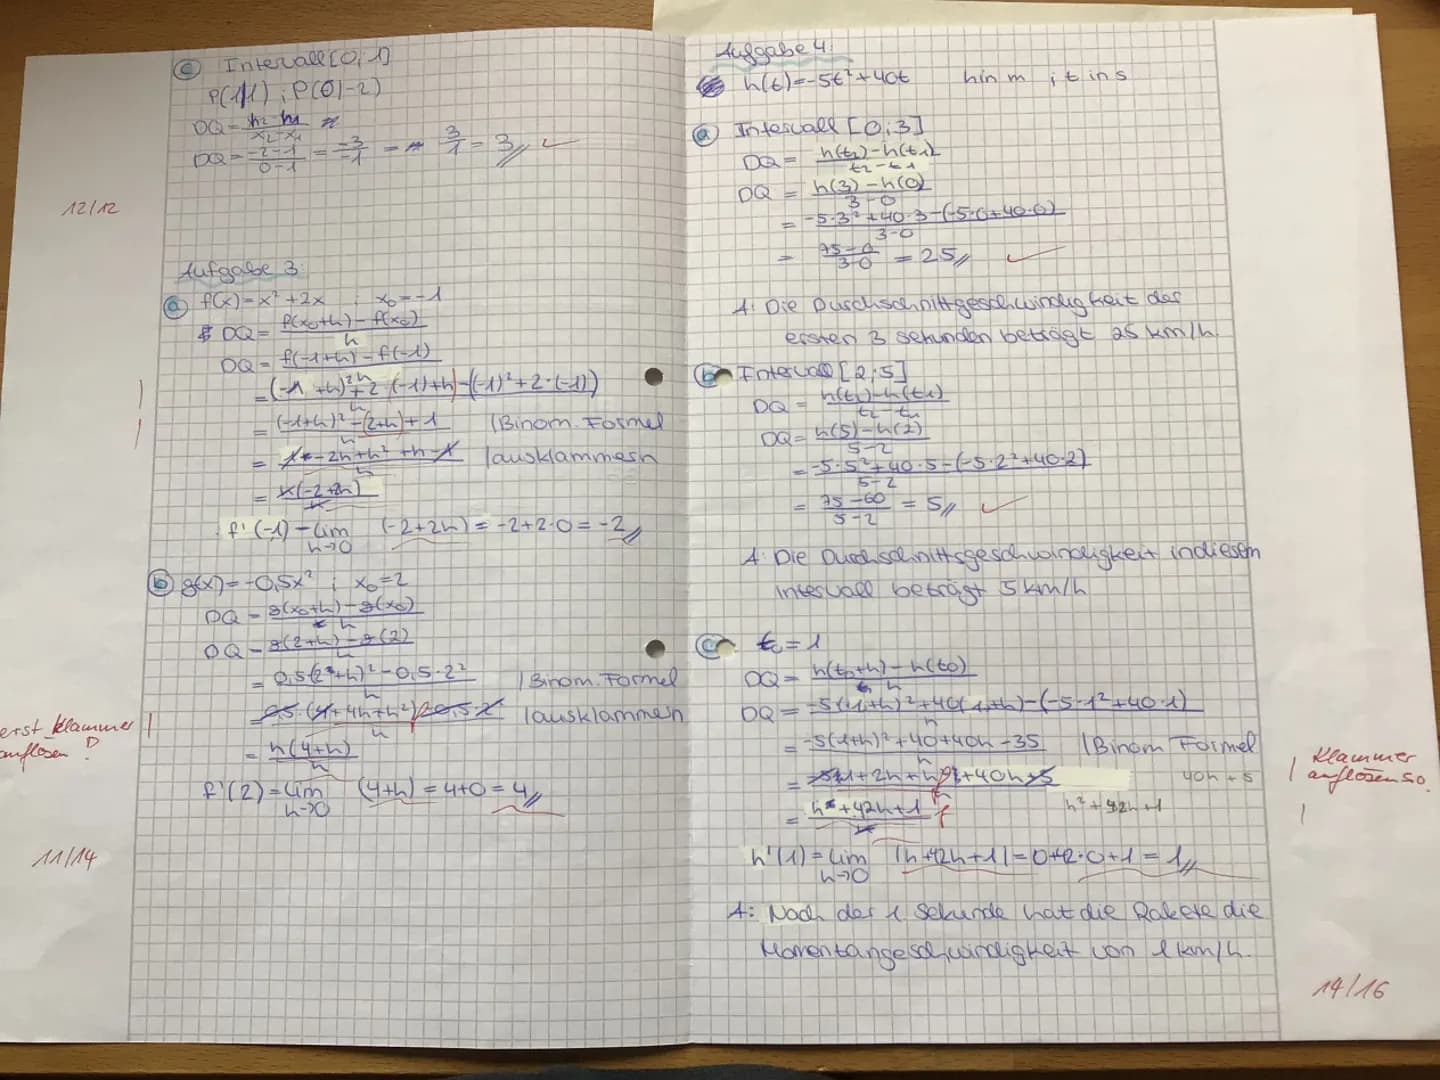 c) Intervall [0;1]
P(1|1) ; P(0|-2)
DQ =
x2-x1
DQ = -2-1 / 0-1 = -3 / -1 = 3/1 = 3
12/12
Aufgabe 3:
a) f(x)=x²+2x ; x0=-1
DQ = f(x0+h)-f(x0) / h
DQ = f(-1+h)-f(-1) / h
= (-1+h)²+2·(-1)+h-(-1)²+2·(-1)) / h
= (-1+h)²-(2+h)+1 / h | Binom. Formel
= 1-2h+h²+h-1 / h | ausklammern
= h(-2+2h) / h
f'(-1)=lim h→0 (-2+2h) = -2+2·0 = -2
b) g(x)=-0,5x² ; x0=2
DQ = g(x0+h)-g(x0) / h
DQ = g(2+h)-g(2) / h
= 0,5(2+h)²-0,5·2² / h | Binom. Formel
= 0,5·(4+4h+h²)-0,5·2 / h | ausklammern
erst Klammer auflösen!
= h(4+h) / h
f'(2)=lim h→0 (4+h) = 4+0 = 4
11/14
Aufgabe 4:
h(t)=-5t²+40t h in m ; t in s
a) Intervall [0;3]
DQ = h(t2)-h(t1) / t2-t1
DQ = h(3)-h(0) / 3-0
= -5·3²+40·3-(-5·0+40·0) / 3-0
= 75-0 / 3-0 = 25
A: Die Durchschnittgeschwindigkeit der
ersten 3 sekunden beträgt 25 km/h.
b) Intervall [2;5]
DQ = h(t2)-h(t1) / t2-t1
DQ = h(5)-h(2) / 5-2
= -5·5²+40·5-(-5·2²+40·2) / 5-2
= 75-60 / 5-2 = 5
A: Die Durchschnittsgeschwindigkeit in diesem
Intervall beträgt 5 km/h
c) t0=1
DQ = h(t0+h)-h(t0) / h
DQ = -5(1+h)²+40(1+h)-(-5·1²+40·1) / h
= -5(1+h)²+40+40h-35 / h | Binom Formel
= -5·1+2h+h²+40h+5 / h 40h+5
Klammer auflösen so.
= h²+42h+1 / h h²+42h+1
h'(1)=lim h→0 (h+42h+1)=0+42·0+1=1
A: Nach der 1 Sekunde hat die Rakete die
Momentangeschwindigkeit von 1 km/h.
14/16